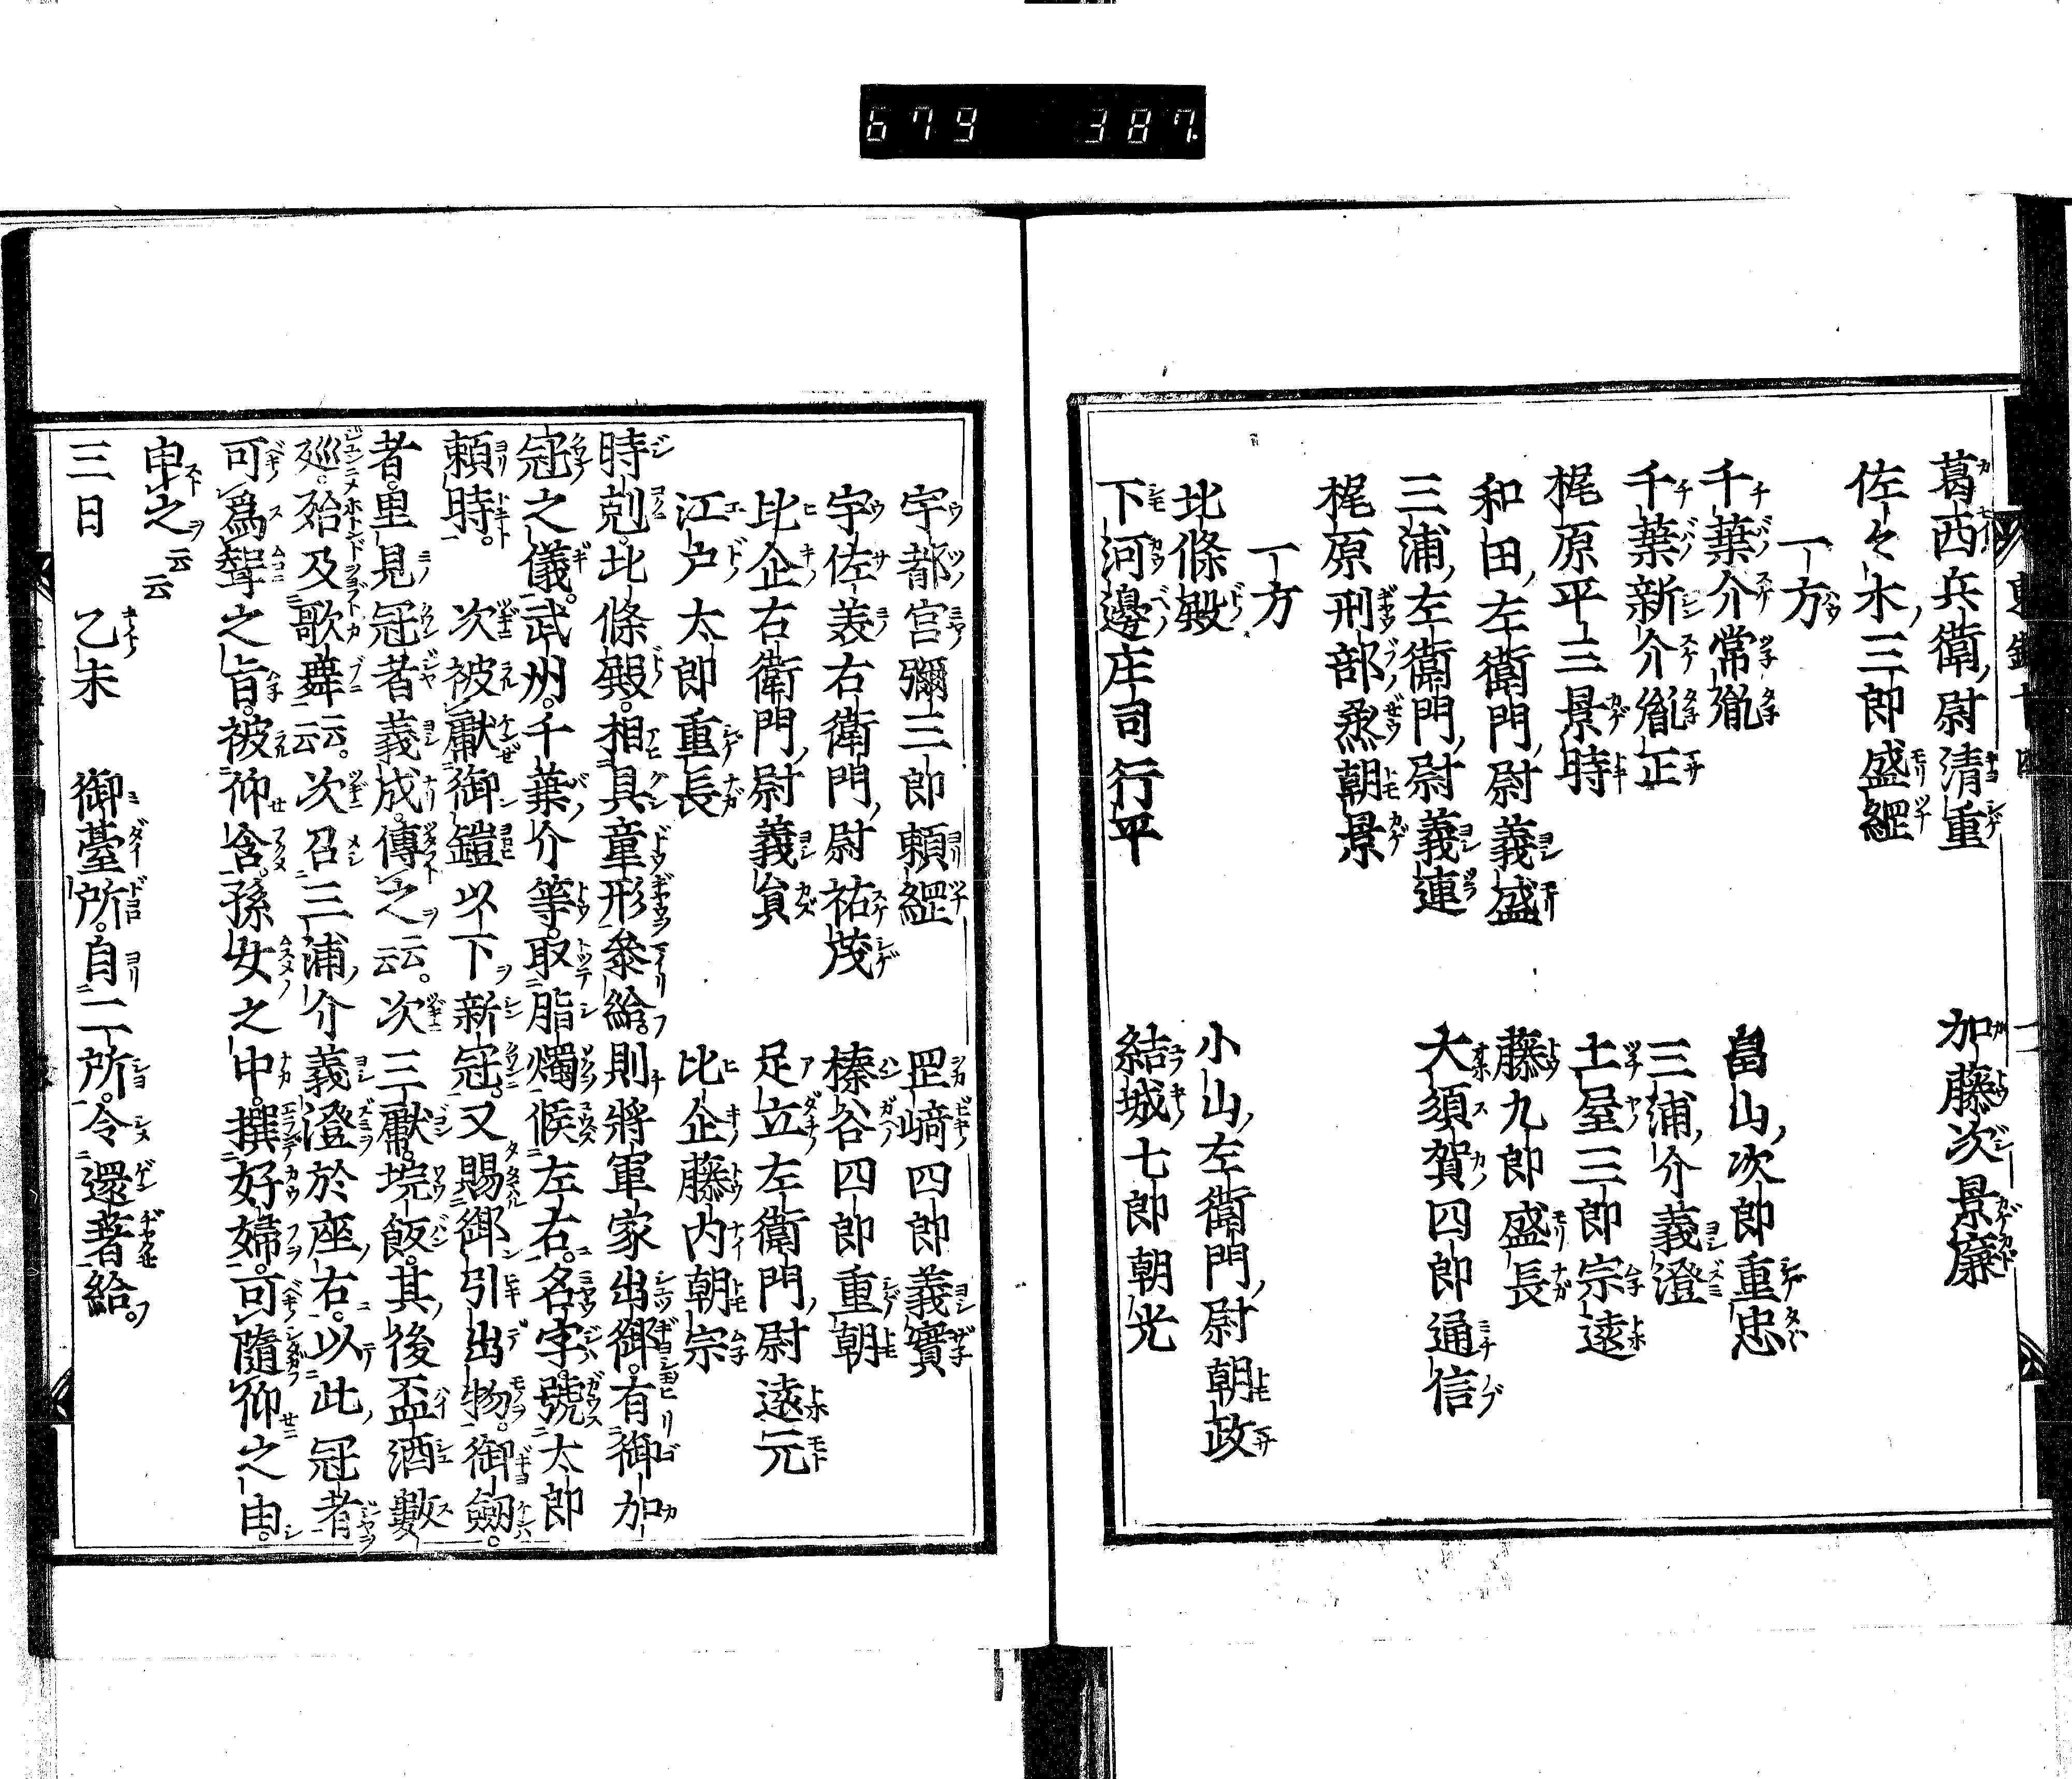 679 387
葛西兵衛尉清重　加藤次景廉
佐々木三郎盛綱
一方
千葉介常胤　畠山次郎重忠
千葉新介胤正　三浦介義澄
梶原平三景時　土屋三郎宗遠
和田左衛門尉義盛　藤九郎盛長
三浦左衛門尉義連　大須賀四郎通信
梶原刑部烝朝景
一方
北條殿　小山左衛門尉朝政
下河邊庄司行平　結城七郎朝光
宇都宮彌三郎頼綱　罡﨑四郎義實
宇佐美右衛門尉祐茂　榛谷四郎重朝
比企右衛門尉義貟　足立左衛門尉遠元
江戸太郎重長　比企藤内朝宗
時剋。北條殿。相具童形叅給。則將軍家出御。有御加
冠之儀。武州。千葉介等。取脂燭候左右。名字。號太郎
頼時。次被獻御鎧以下新冠。又賜御引出物。御劔。
者。里見冠者義成。傳之云云。次三獻。垸飯。其後盃酒數
廵。殆及歌舞云云。次召三浦介義澄於座右。以此冠者
可爲聟之旨。被仰含。孫女之中。撰好婦。可隨仰之由。
申之云云
三日　乙未　御臺所。自二所。令還著給。